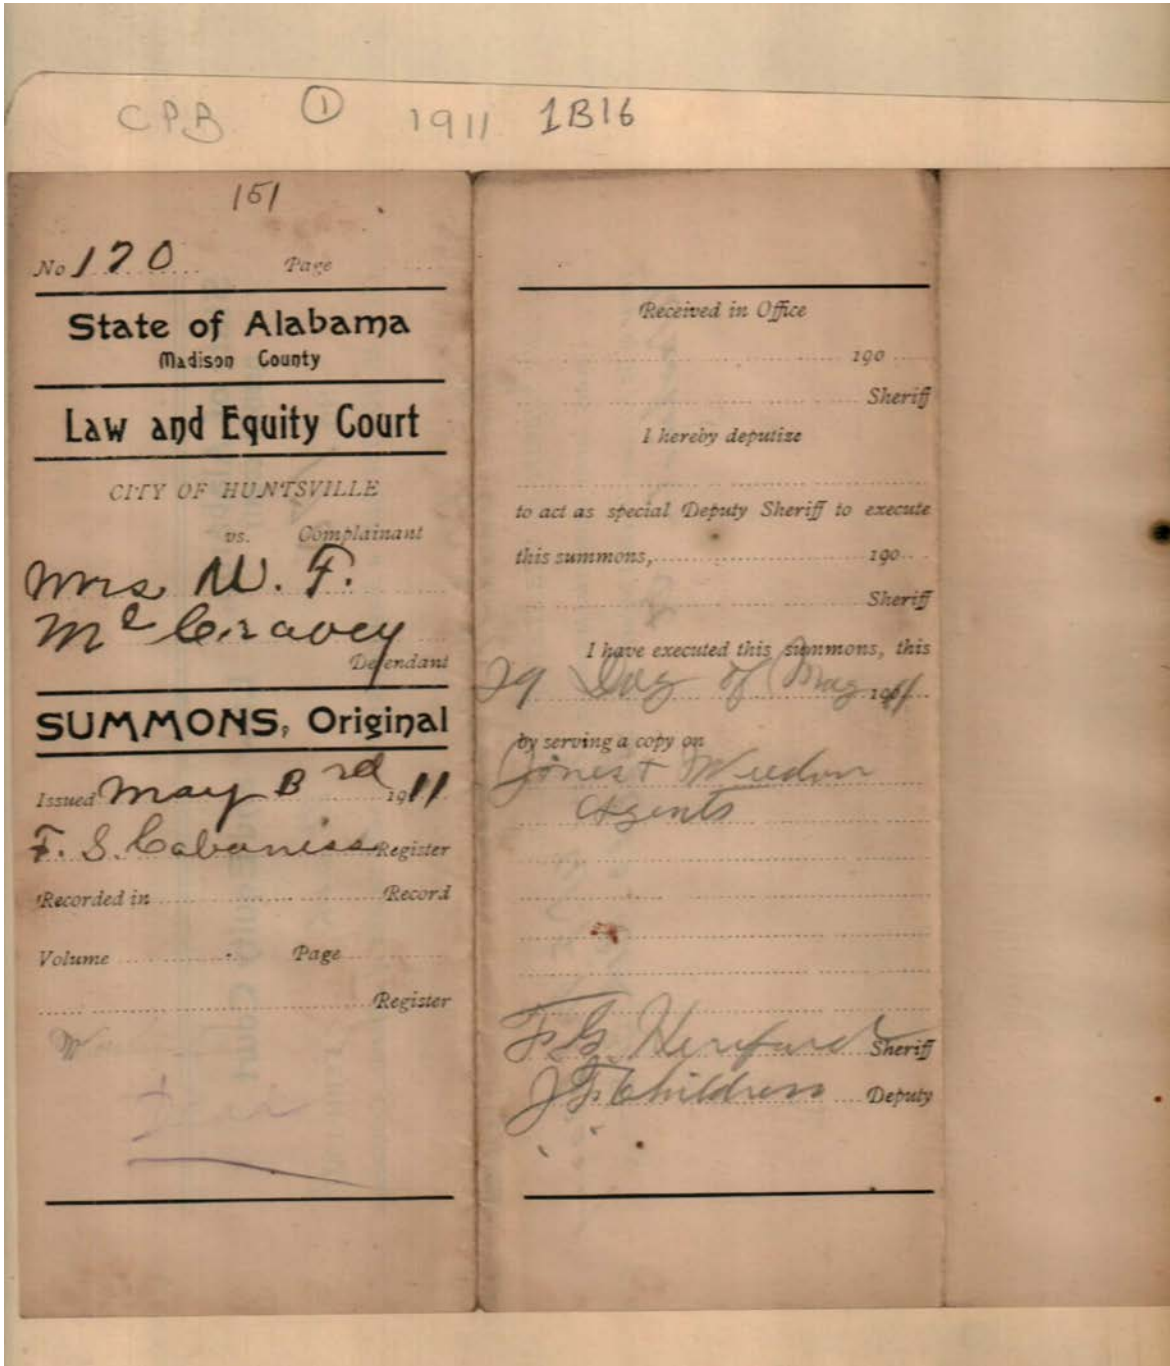 CPB ① 1911 1B16
151
No 170 Page
State of Alabama
Madison County
Law and Equity Court
CITY OF HUNTSVILLE
vs. Complainant
Mrs W. F.
McCravey
Defendant
SUMMONS, Original
Issued May 3rd 1911
F. S. Cabaniss Register
Recorded in Record
Volume Page
Register
Received in Office
190
Sheriff
I hereby deputize
to act as special Deputy Sheriff to execute
this summons, 190
Sheriff
I have executed this summons, this
29 Day of May 1911
by serving a copy on
Jones & Weedon
Agents
F. G. Hereford Sheriff
J F Childress Deputy